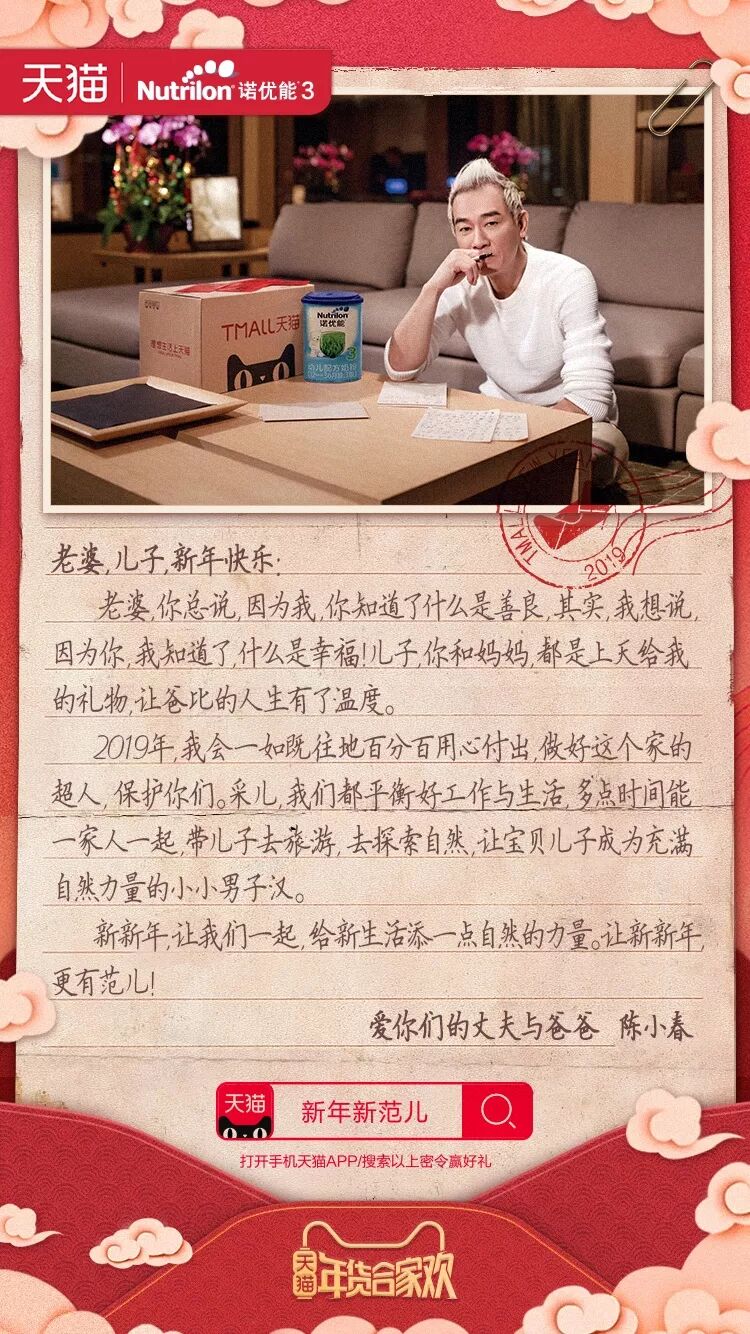 天猫 Nutrilon 诺优能3
TMALL天猫
理想生活上天猫
Nutrilon
诺优能
3
幼儿配方奶粉
TMALL
2019
老婆,儿子,新年快乐:
老婆,你总说,因为我,你知道了什么是善良,其实,我想说,
因为你,我知道了,什么是幸福!儿子,你和妈妈,都是上天给我
的礼物,让爸比的人生有了温度。
2019年,我会一如既往地百分百用心付出,做好这个家的
超人,保护你们。采儿,我们都平衡好工作与生活,多点时间能
一家人一起,带儿子去旅游,去探索自然,让宝贝儿子成为充满
自然力量的小小男子汉。
新新年,让我们一起,给新生活添一点自然的力量。让新新年,
更有范儿!
爱你们的丈夫与爸爸 陈小春
天猫 新年新范儿
打开手机天猫APP/搜索以上密令赢好礼
天猫 年货合家欢